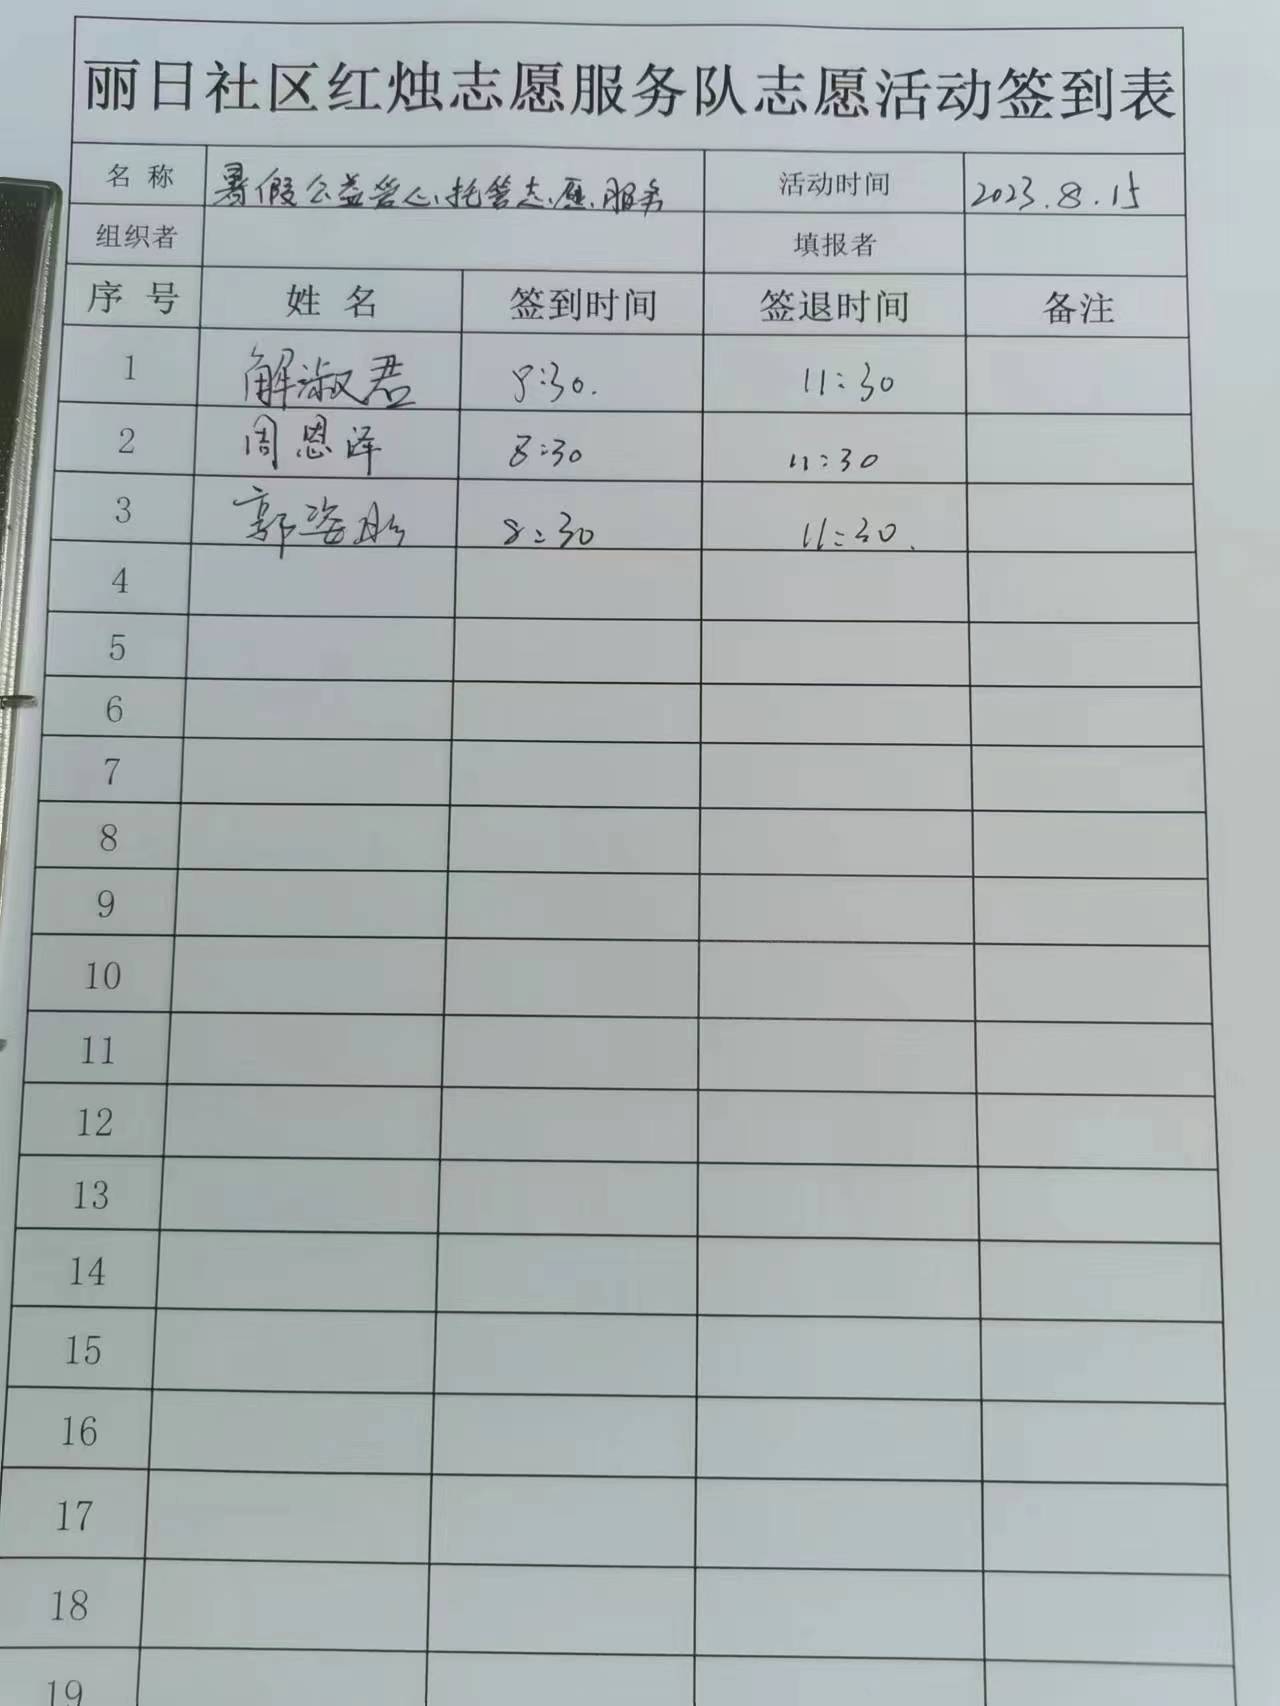 丽日社区红烛志愿服务队志愿活动签到表
名 称 暑假公益爱心托管志愿服务 活动时间 2023.8.15
组织者 填报者
序 号 姓 名 签到时间 签退时间 备注
1 解淑君 8:30. 11:30
2 周恩泽 8:30 11:30
3 郭姿彤 8:30 11:30.
4
5
6
7
8
9
10
11
12
13
14
15
16
17
18
19